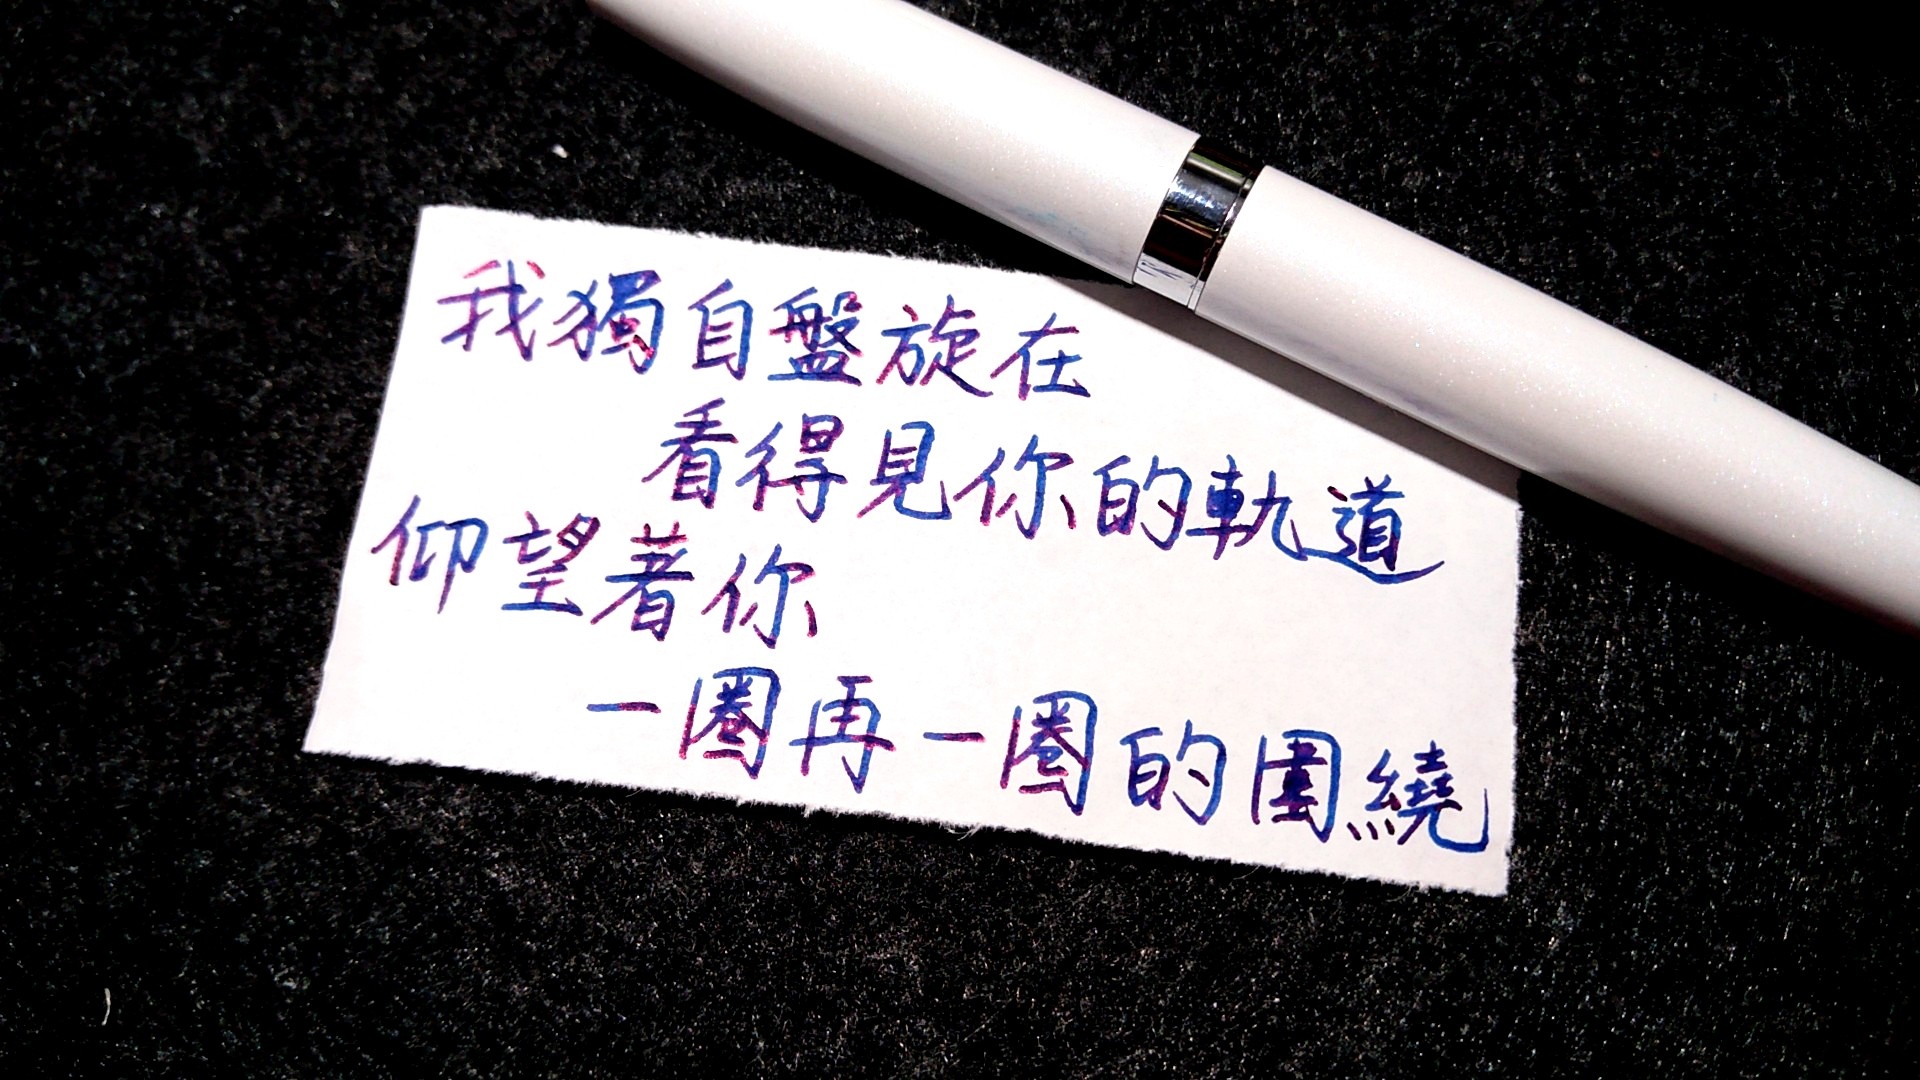 我獨自盤旋在
看得見你的軌道
仰望著你
一圈再一圈的圍繞